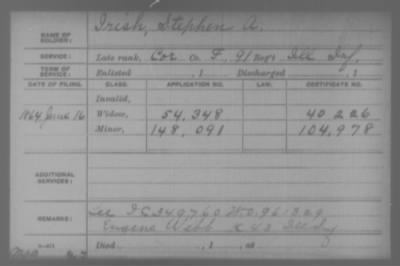 NAME OF SOLDIER: Irish, Stephen A.
SERVICE: Late rank, Cor Co. F, 91 Reg't Ill Inf.
TERM OF SERVICE: Enlisted , 1 Discharged , 1
DATE OF FILING. CLASS. APPLICATION NO. LAW. CERTIFICATE NO.
Invalid,
1864 June 16 Widow, 54,348 40226
Minor, 148,091 104,978
ADDITIONAL SERVICES:
REMARKS: See I C 349760 W.O. 961329
Eugene Webb K 43 Ill Inf
Died , 1 , at